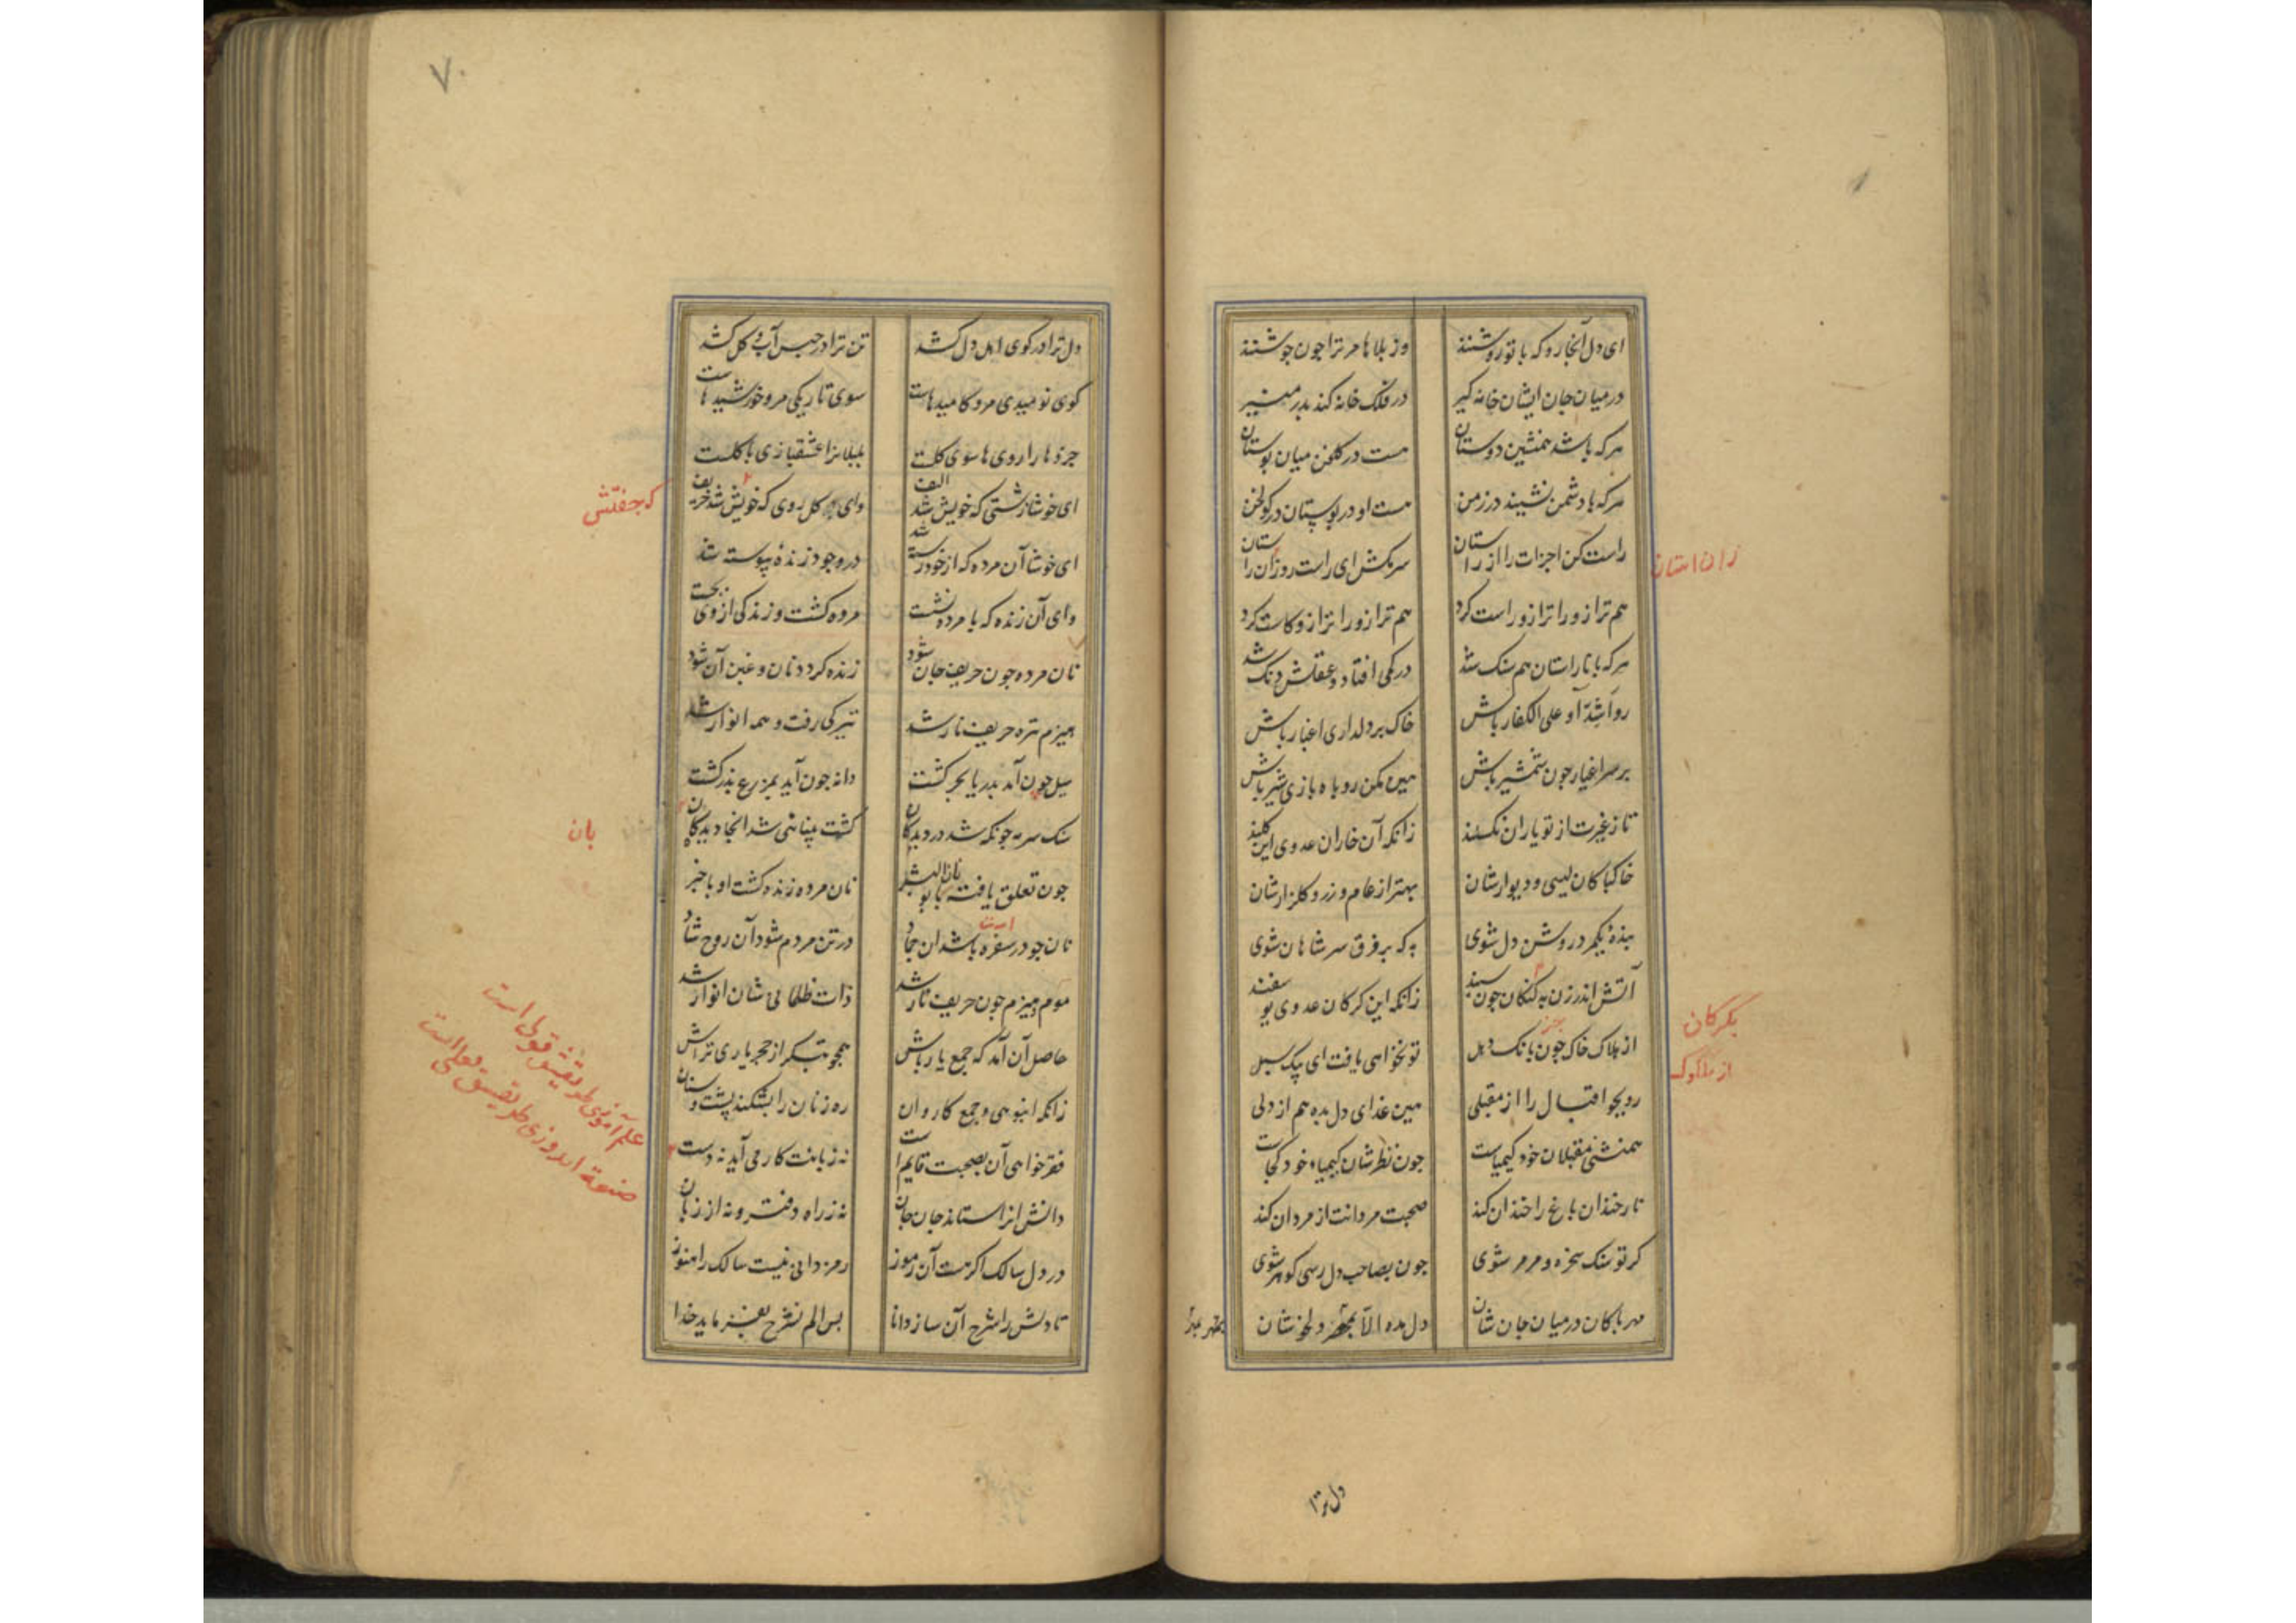 ای دل آنجا رو که با تو روشنند
وز بلاها مر ترا چون جوشنند
در میان جان ایشان خانه کیر
در فلک خانه کند بدر منیر
هرکه باشد همنشین دوستان
هست در کلخن میان بوستان
هرکه با دشمن نشیند در زمن
هست او در بوستان در کولخن
راست کن اجزات را از راستان
سر مکش ای راست رو زان راستان
زان استان
هم ترازو را ترازو راست کرد
هم ترازو را ترازو کاست کرد
هرکه با ناراستان هم سنک شد
در کمی افتاد و عقلش دنک شد
رو اشداء علی الکفار باش
خاک بر دلداری اغیار باش
بر سر اغیار چون شمشیر باش
هین مکن روباه بازی شیر باش
تا ز غیرت از تو یاران نکسلند
زانکه آن خاران عدوی این کلند
خاک پاکان لیسی و دیوارشان
بهتر از عام و رز و کلزارشان
بنده یکمرد روشن دل شوی
به که بر فرق سر شاهان شوی
آتش اندر زن به کرکان چون سپند
زانکه این کرکان عدوی یوسفند
بکرکان
از ملوک خاک جز بانک دهل
تو نخواهی یافت ای پیک سبل
از ملوک
رو بجو اقبال را از مقبلی
هین غذای دل بده هم از دلی
همنشینی مقبلان خود کیمیاست
چون نظرشان کیمیاء خود کجاست
نار خندان باغ را خندان کند
صحبت مردانت از مردان کند
کر تو سنک سخره و مرمر شوی
چون بصاحب دل رسی کوهر شوی
مهر پاکان در میان جان نشان
دل مده الا بمهر دلخوشان
دل ترا
۷۰
دل ترا در کوی اهل دل کشد
تن ترا در حبس آب و کل کشد
کوی نومیدی مرو کامیدهاست
سوی تاریکی مرو خورشیدهاست
جزوها را رویها سوی کلست
بلبلانرا عشقبازی با کلست
ای خوشا زشتی که خویش شد حریف
وای کل روی که خویش شد خریف
که جفتش
ای خوشا آن مرده که از خود رسته شد
در وجود زنده پیوسته شد
وای آن زنده که با مرده نشست
مرده کشت و زندکی از وی بجست
نان مرده چون حریف جان شود
زنده کردد نان و عین آن شود
هیزم تیره حریف نار شد
تیرکی رفت و همه انوار شد
سیل چون آمد بدریا بحر کشت
دانه چون آمد بمزرع بذر کشت
سنک سرمه چونکه شد در دیدکان
کشت بینایی شد آنجا دیدکان
بان
چون تعلق یافت نان با بوالبشر
نان مرده زنده کشت او با خبر
نان چو در سفره باشد آن جماد
در تن مردم شود آن روح شاد
موم و هیزم چون حریف نار شد
ذات ظلمانی شان انوار شد
حاصل آن آمد که جمع یار باش
همچو بتکر از حجر یاری تراش
زانکه انبوهی و جمع کاروان
ره زنان را بشکند پشت و سنان
فقر خواهی آن بصحبت قایمست
نه زبانت کار می آید نه دست
علم آموزی طریقش قولی است
صنعة اندوزی طریقش فعلی است
دانش آنرا ستاند جان ز جان
نه ز راه دفتر و نه از زبان
در دل سالک اکر هست آن رموز
رمز دانی نیست سالک را هنوز
تا دلش را شرح آن سازد دانا
پس الم نشرح بفرماید خدا